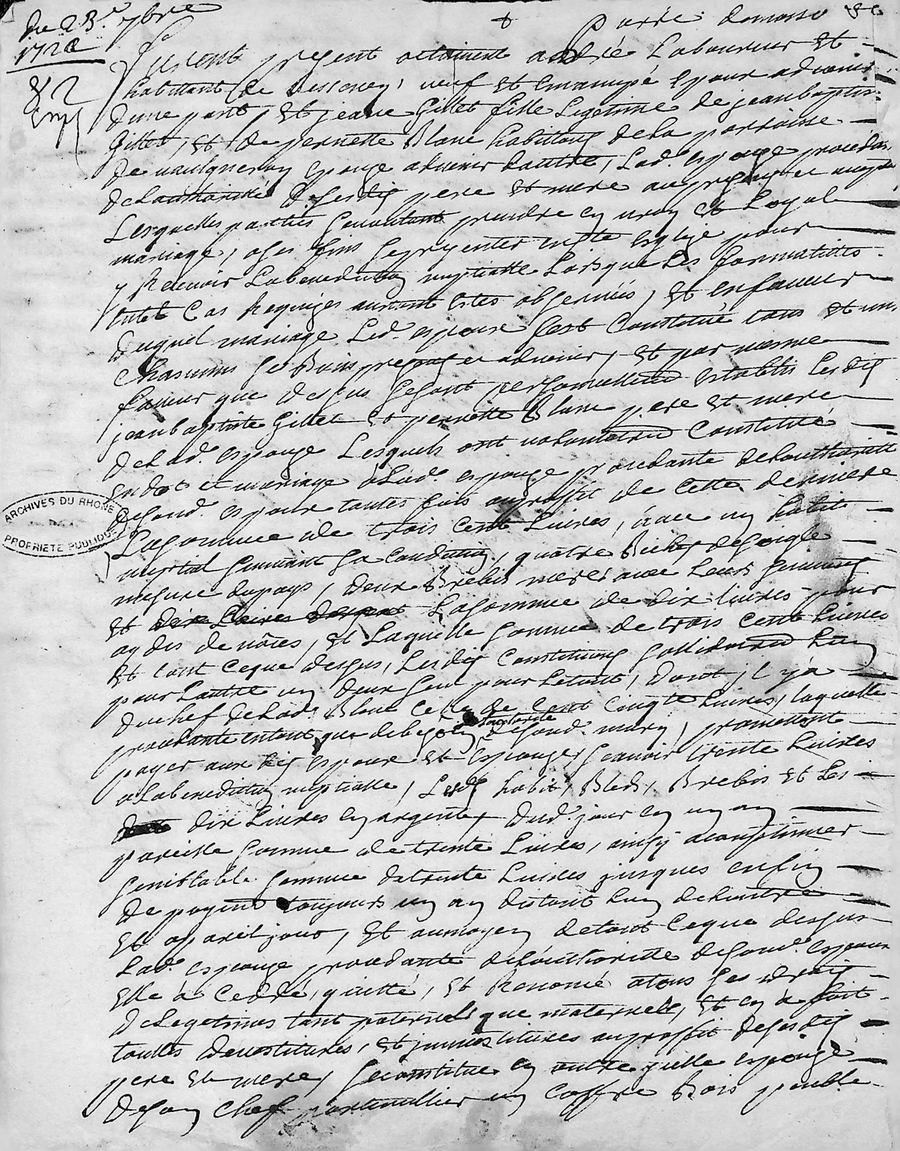 du 23e 9bre
1722
Parde
furent present André Laboureur et
habitant de vessoney, neuf et Emancipé Epoux advenir
dune part, et jeane Gillet fille Legitime de jean baptiste
Gillet, et de pernette Blanc habitans de la parroisse
De vaulgneray epouze advenir dautre, Lad. espouze procedante
de Lauthorité desdits pere et mere
Lesquelles parties prendre en vray et Loyal
mariage, a ses fins se presenter en Ste Eglize pour
y Recevoir La benediction nuptialle Lorsque Les formalittes
en tel Cas Requizes auront Estes observées, Et en faveur
duquel mariage Led. espoux sest Constitué tous et uns
Chascuns ses Biens presens et advenir, Et par mesme
faveur que dessus se sont personnellement establis lesdits
jean baptiste Gillet Et pernette Blanc pere Et mere
de Lad. espouze Lesquels ont volontairement Constitué
En dot et mariage a Lad. espouze procedante de Lauthorité
desond. espoux toutes fois au proffit de Cette derniere
La somme de trois Cent Livres, avec un habit
nuptial suivant sa Condition, quatre Biches de segle
mesure du pays, deux Brebis meres avec Leurs suivans
Et La somme de dix Livres pour
de nôces, Et Laquelle somme de trois Cent Livres
Et tout Ceque dessus, Lesdits Constituans sollidairement Lun
pour Lautre un deux seul pour Letout, Dont il y a
du chef de Lad. Blanc Celle de Cent Cinqte Livres, laquelle
procedante entant que de bezoin de Lauthorité desond. mary, promettent
payer auxdits espoux Et espouze, scavoir trente Livres
a La benediction nuptialle, Lesdits habit, Bled, Brebis et Les
dix Livres en argent, dud. jour en un an
pareille somme de trente Livres, ainsy a continuer
semblable somme de trente Livres jusques enfin
de payemt toujours un an distant Lun de Lautre
Et a pareil jour, Et au moyen de tout Ceque dessus
Lad. espouze procedante de Lauthorité desond. espoux
Elle à Ceddé, quitté, Et Renoncé a tous ses droits
de Legetimes tant paternel que maternels, Et en a fait
touttes devestitures, Et investitures au proffit desesdits
pere Et mere, se constitue en outre jcelle espouze
de son Chef particullier un Coffre Bois peuble
ARCHIVES DU RHÔNE
PROPRIÉTÉ PUBLIQUE